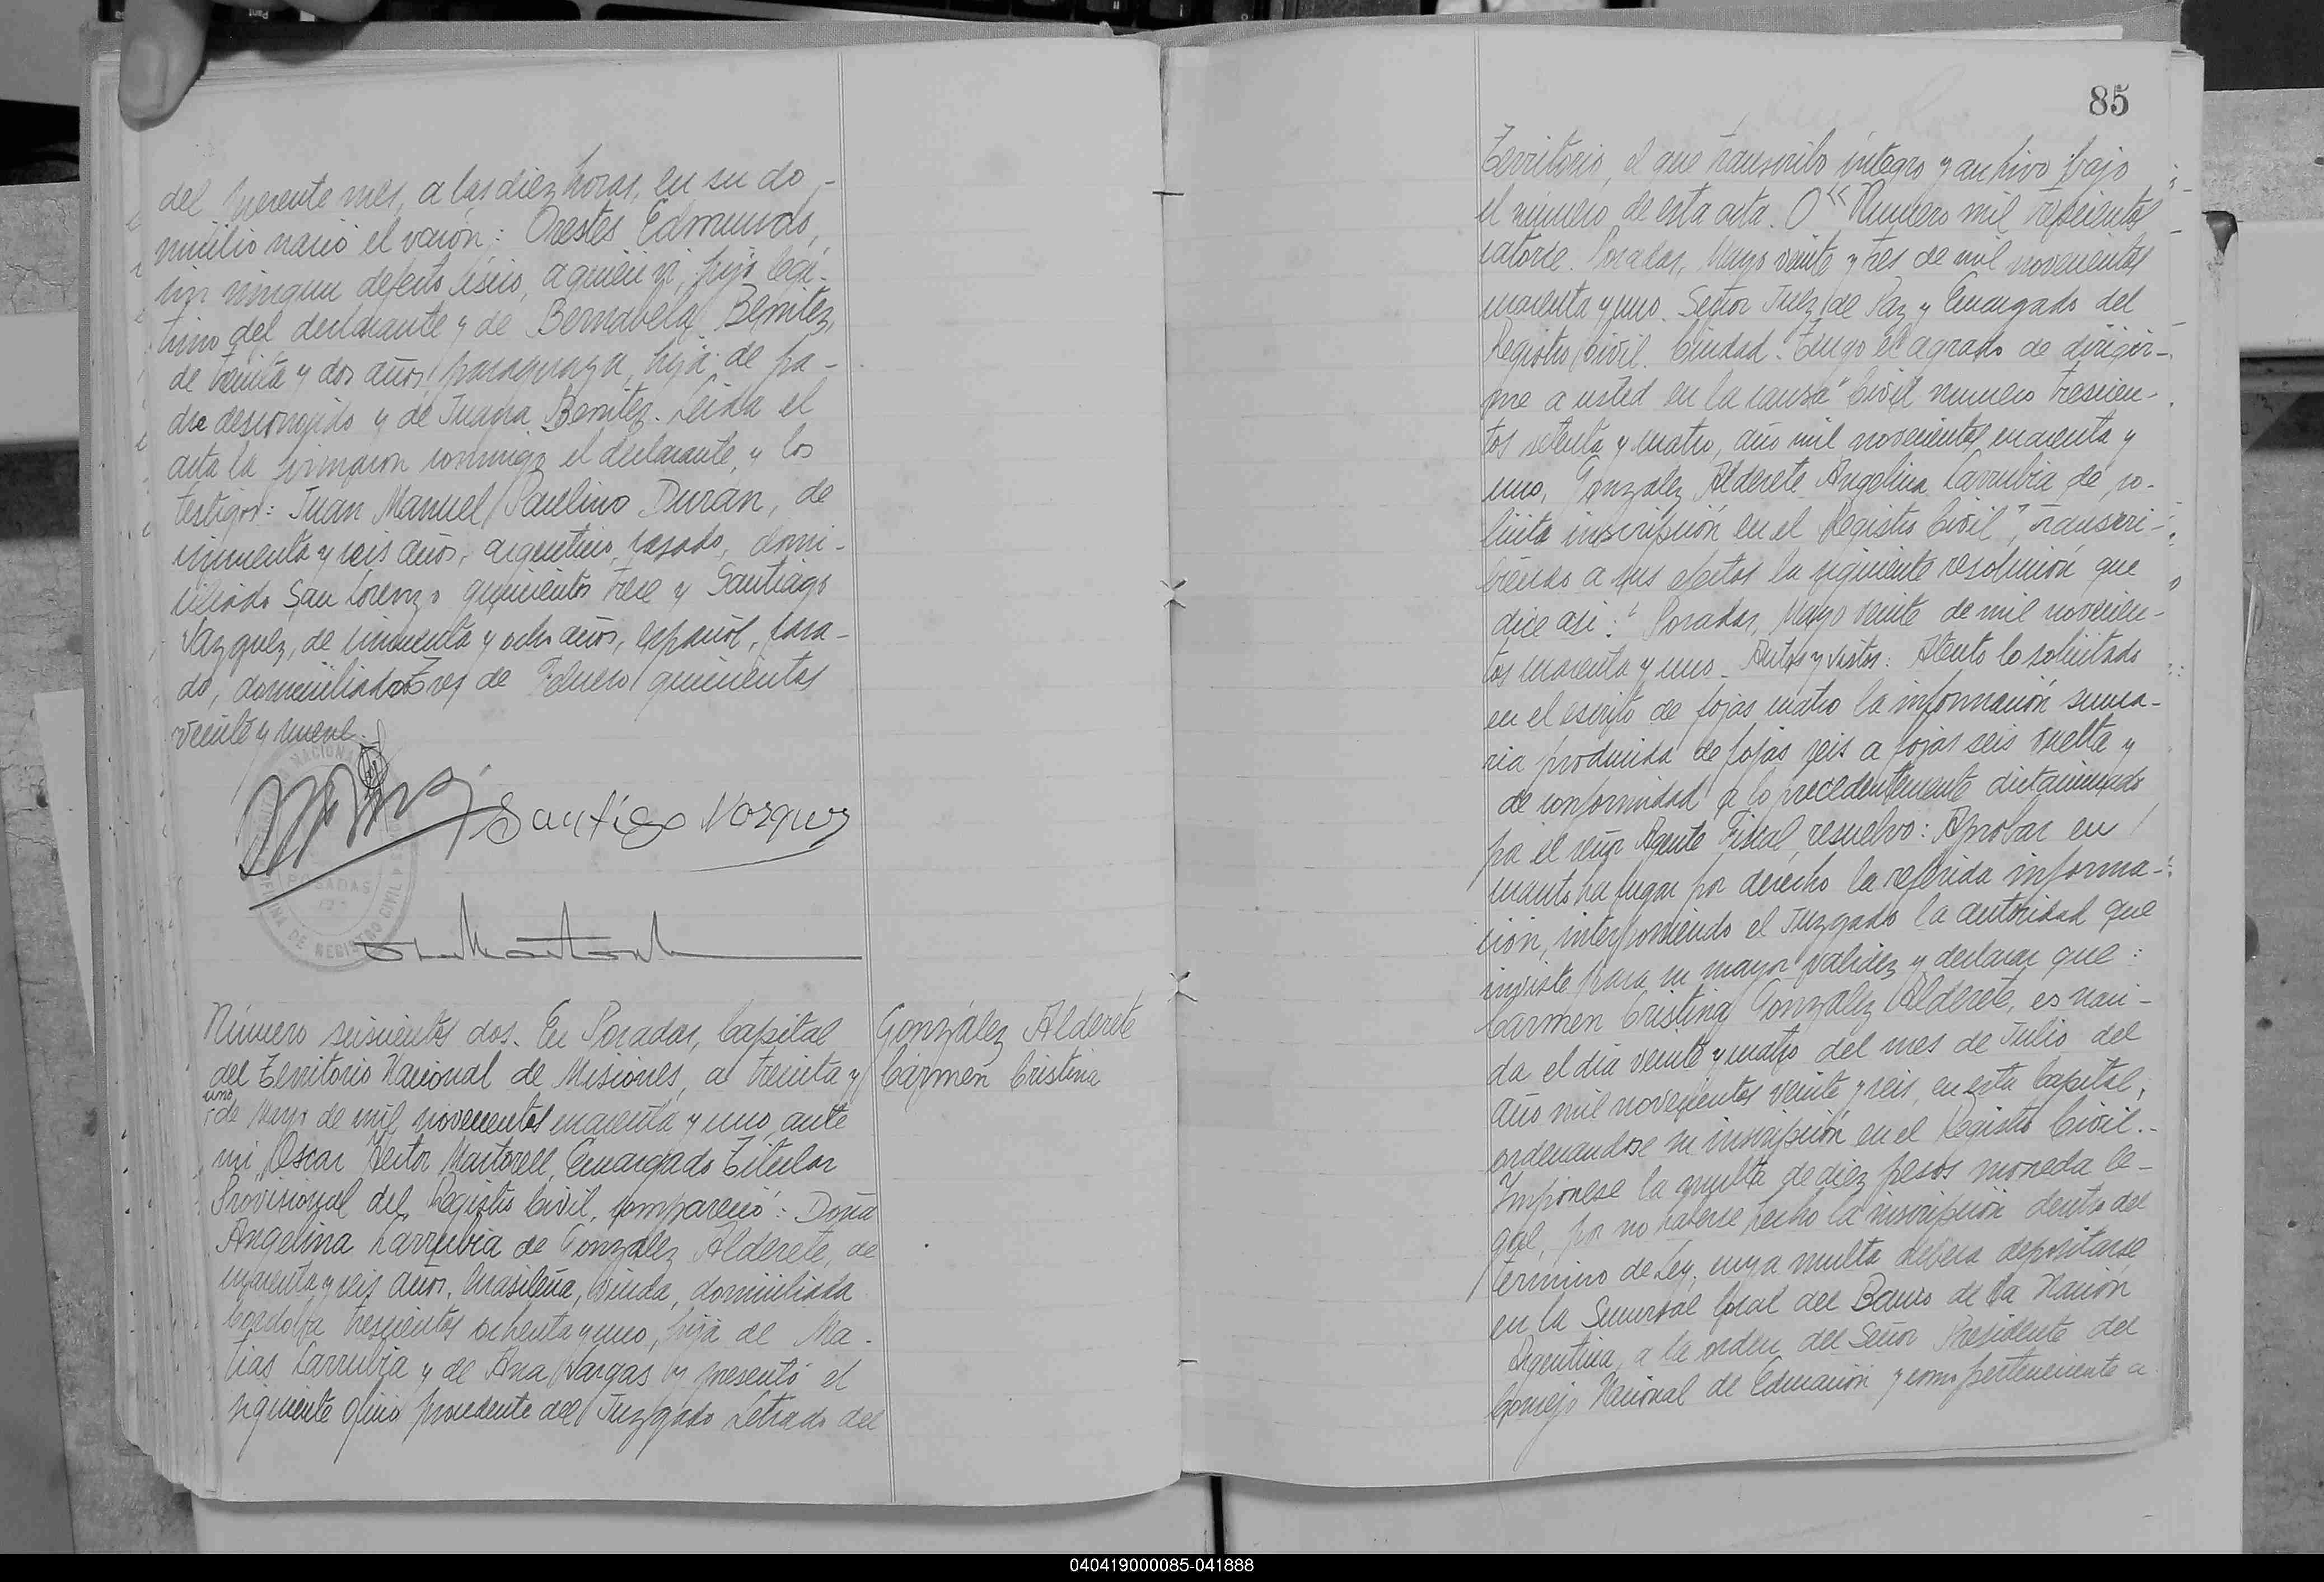 del presente mes, a las diez horas, en su do-
micilio nació el varón: Orestes Edmundo,
sin ningun defecto físico, a quien vi, hijo legí-
timo del declarante y de Bernabela Benitez,
de treinta y dos años, paraguaya, hija de pa-
dre desconocido y de Juana Benitez. Leída el
acta la firmaron conmigo el declarante, y los
testigos: Juan Manuel Paulino Duran, de
cincuenta y seis años, argentino, casado, domi-
ciliado San Lorenzo quinientos trece y Santiago
Vazquez, de cincuenta y ocho años, español, casa-
do, domiciliado Tres de Febrero quinientos
veinte y nueve.
Santiago Vazquez
POSADAS
OFICINA DE REGISTRO CIVIL
Número seiscientos dos. En Posadas, Capital
del Territorio Nacional de Misiones, a treinta y
uno
de Mayo de mil novecientos cuarenta y uno, ante
mi, Oscar Hector Martorell, Encargado Titular
Provisional del Registro Civil, compareció: Doña
Angelina Larrubia de González Alderete, de
cuarenta y seis años, brasileña, viuda, domiciliada
Cordoba trescientos ochenta y uno, hija de Ma-
tias Larrubia y de Ana Vargas y presentó el
siguiente oficio procedente del Juzgado Letrado del
González Alderete
Cármen Cristina
85
Territorio, el que transcribo íntegro y archivo bajo
el número de esta acta. O "Numero mil trescientos
catorce. Posadas, Mayo veinte y tres de mil novecientos
cuarenta y uno. Señor Juez de Paz y Encargado del
Registro Civil. Ciudad. Tengo el agrado de dirigir-
me a usted en la causa "Civil numero trescien-
tos setenta y cuatro, año mil novecientos cuarenta y
uno, González Alderete Angelina Larrubia de so-
licita inscripción en el Registro Civil", transcri-
biendo a sus efectos la siguiente resolución que
dice asi: "Posadas, Mayo veinte de mil novecien-
tos cuarenta y uno. Autos y vistos: Atento lo solicitado
en el escrito de fojas cuatro la información suma-
ria producida de fojas seis a fojas seis vuelta y
de conformidad a lo precedentemente dictaminado
por el señor Agente Fiscal, resuelvo: Aprobar en
cuanto ha lugar por derecho la referida informa-
ción, interponiendo el Juzgado la autoridad que
inviste para su mayor validez y declarar que:
Carmen Cristina González Alderete, es naci-
da el día veinte y cuatro del mes de Julio del
año mil novecientos veinte y seis, en esta Capital,
ordenandose su inscripción en el Registro Civil.-
Impónese la multa de diez pesos moneda le-
gal, por no haberse hecho la inscripción dentro del
término de Ley, cuya multa debera depositarse
en la Sucursal local del Banco de la Nación
Argentina, a la orden del Señor Presidente del
Consejo Nacional de Educación y como perteneciente a
040419000085-041888